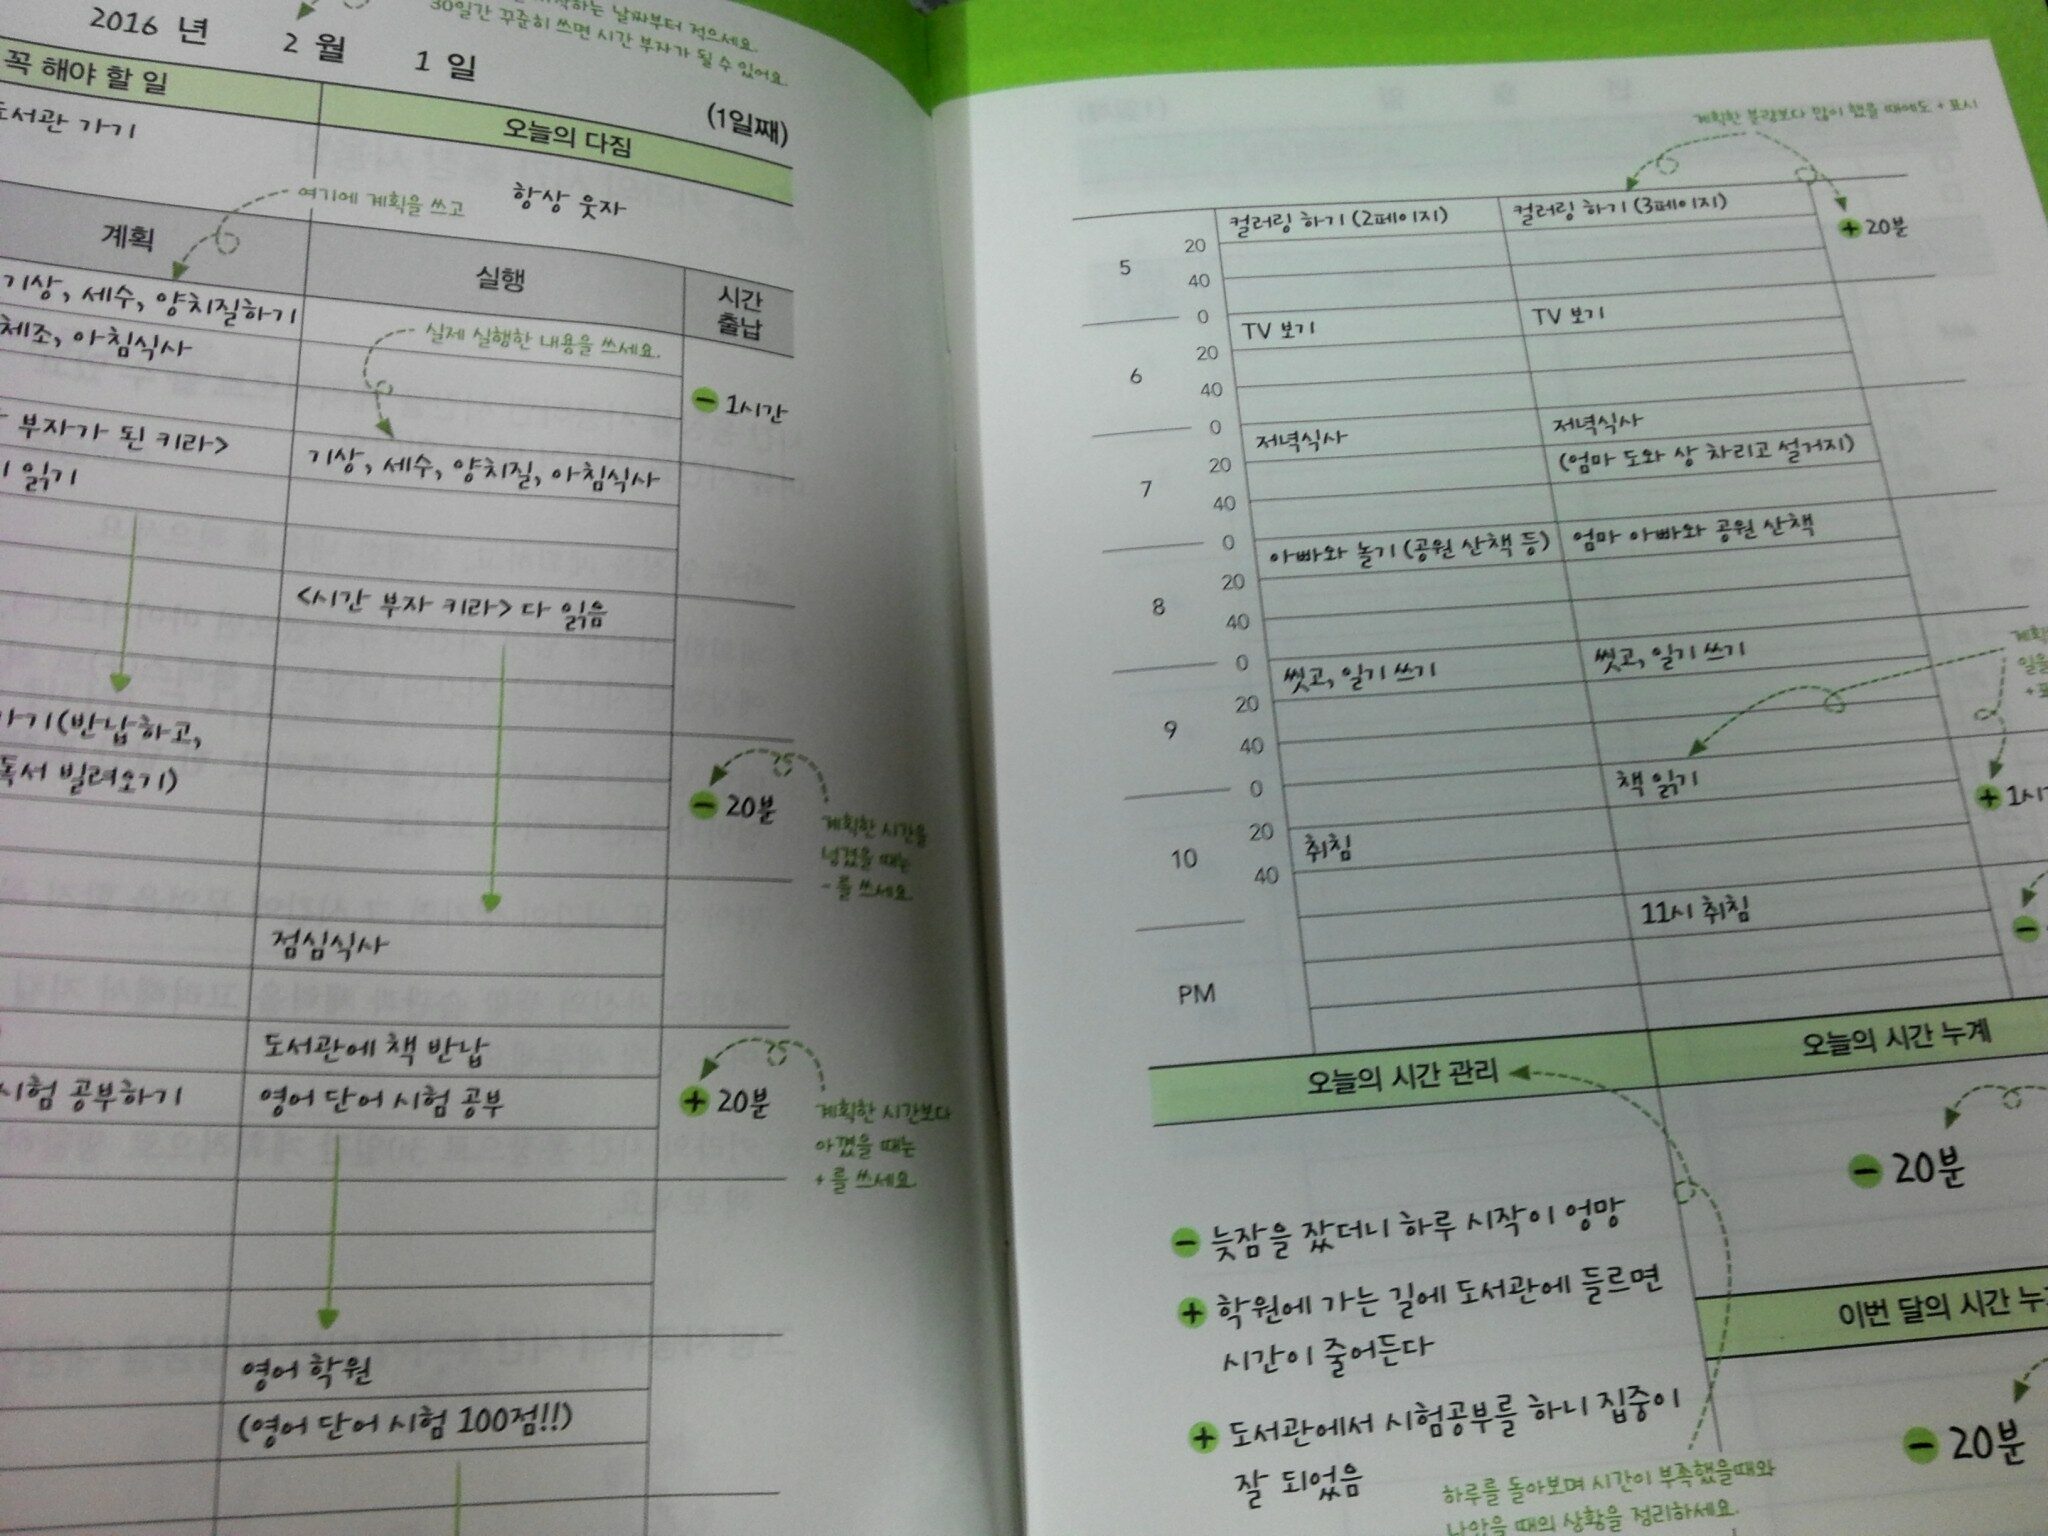 하는 날짜부터 적으세요.
30일간 꾸준히 쓰면 시간 부자가 될 수 있어요.
2016 년 2 월 1 일
(1일째)
꼭 해야 할 일
오늘의 다짐
도서관 가기
여기에 계획을 쓰고
항상 웃자
계획
실행
시간
출납
기상, 세수, 양치질하기
체조, 아침식사
실제 실행한 내용을 쓰세요.
- 1시간
부자가 된 키라>
읽기
기상, 세수, 양치질, 아침식사
<시간 부자 키라> 다 읽음
가기(반납하고,
독서 빌려오기)
- 20분
계획한 시간을
넘겼을 때는
- 를 쓰세요.
점심식사
도서관에 책 반납
시험 공부하기
영어 단어 시험 공부
+ 20분
계획한 시간보다
아꼈을 때는
+를 쓰세요.
영어 학원
(영어 단어 시험 100점!!)
계획한 분량보다 많이 했을 때에도 + 표시
컬러링 하기 (2페이지)
컬러링 하기 (3페이지)
+ 20분
5
20
40
0
TV 보기
TV 보기
6
20
40
0
저녁식사
저녁식사
(엄마 도와 상 차리고 설거지)
7
20
40
0
아빠와 놀기 (공원 산책 등)
엄마 아빠와 공원 산책
8
20
40
0
씻고, 일기 쓰기
씻고, 일기 쓰기
9
20
40
0
책 읽기
+ 1시
10
20
40
취침
11시 취침
-
PM
오늘의 시간 관리
오늘의 시간 누계
- 20분
- 늦잠을 잤더니 하루 시작이 엉망
+ 학원에 가는 길에 도서관에 들르면
시간이 줄어든다
이번 달의 시간 누
+ 도서관에서 시험공부를 하니 집중이
잘 되었음
- 20분
하루를 돌아보며 시간이 부족했을때와
나았을 때의 상황을 정리하세요.